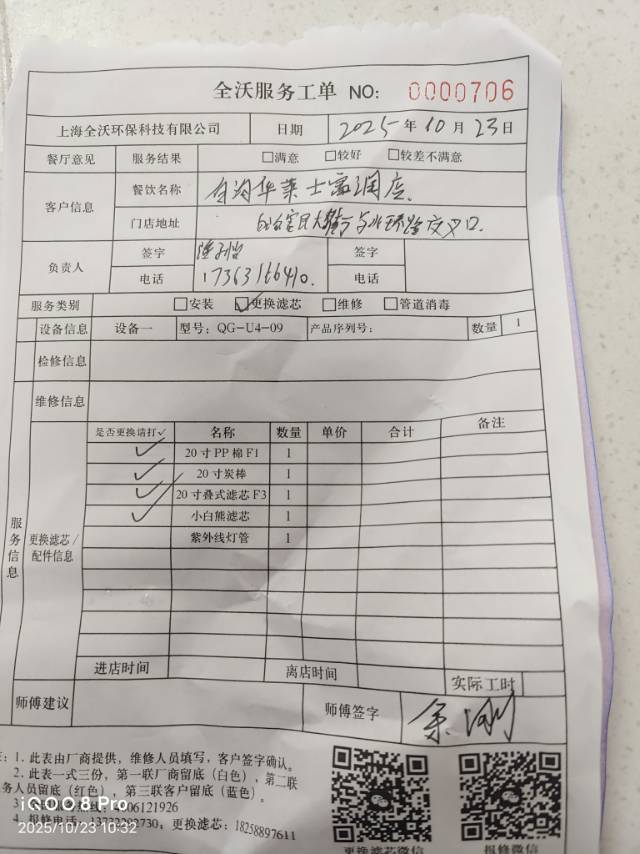 全沃服务工单 NO: 0000706
上海全沃环保科技有限公司 日期 2025年10月23日
餐厅意见 服务结果 □满意 □较好 □较差不满意
客户信息 餐饮名称 华莱士 店
门店地址 与 环路交叉口
负责人 签字 签字
电话 17363166410 电话
服务类别 □安装 ☑更换滤芯 □维修 □管道消毒
设备信息 设备一 型号: QG-U4-09 产品序列号: 数量 1
检修信息
维修信息
服务信息
更换滤芯/配件信息
是否更换请打✓ 名称 数量 单价 合计 备注
✓ 20寸PP棉F1 1
✓ 20寸炭棒 1
✓ 20寸叠式滤芯F3 1
✓ 小白熊滤芯 1
紫外线灯管 1
进店时间 离店时间 实际工时
师傅建议 师傅签字 余刚
1. 此表由厂商提供, 维修人员填写, 客户签字确认。
2. 此表一式三份, 第一联厂商留底(白色), 第二联
务人员留底(红色), 第三联客户留底(蓝色)。
3
06121926
4. 报修电话: 更换滤芯: 18258897611
更换滤芯微信 报修微信
iQOO 8 Pro
2025/10/23 10:32